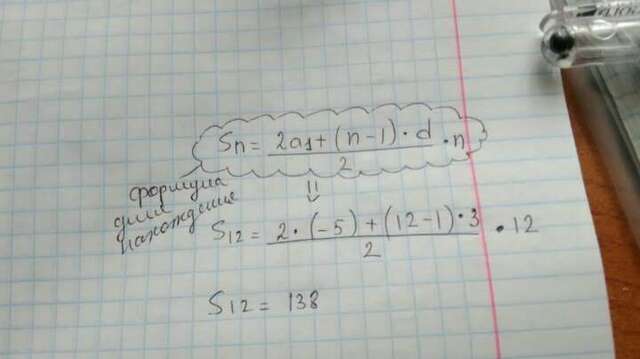 Sn = (2a1 + (n - 1) · d) / 2 · n
формула
для
нахождения
S12 = (2 · (-5) + (12 - 1) · 3) / 2 · 12
S12 = 138